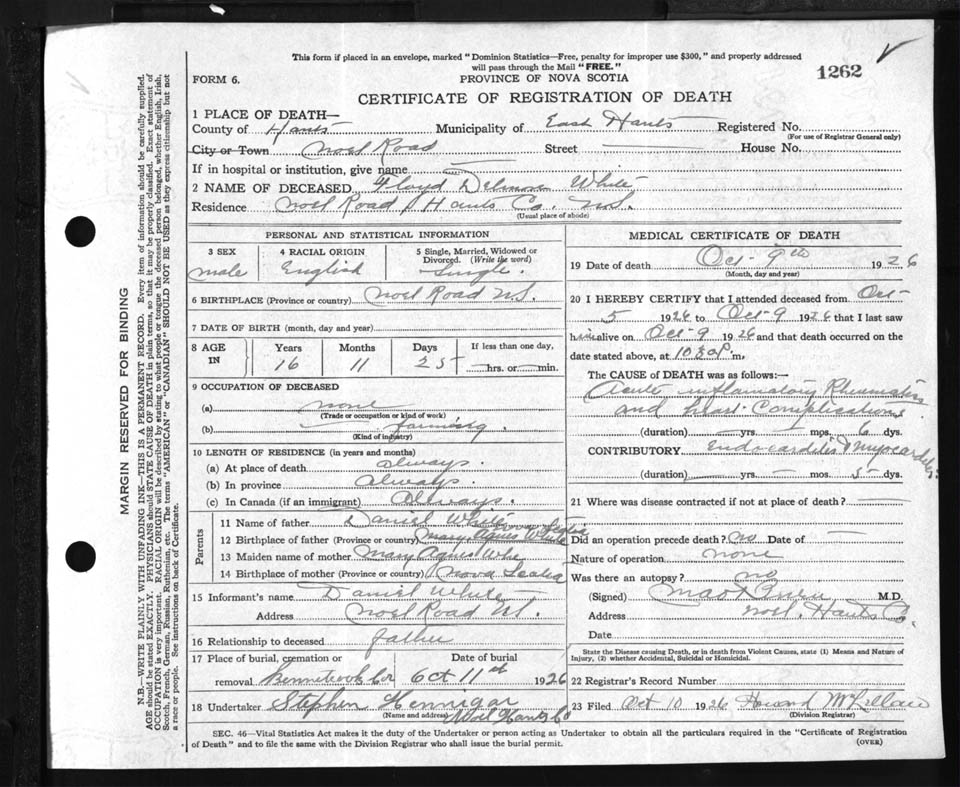 This form if placed in an envelope, marked "Dominion Statistics—Free, penalty for improper use $300," and properly addressed
will pass through the Mail "FREE."
FORM 6.
PROVINCE OF NOVA SCOTIA
1262
CERTIFICATE OF REGISTRATION OF DEATH
1 PLACE OF DEATH—
County of Hants Municipality of East Hants Registered No.
(For use of Registrar General only)
City or Town Noel Road Street — House No.
If in hospital or institution, give name —
2 NAME OF DECEASED Floyd Delmore White
Residence Noel Road, Hants Co. N.S.
(Usual place of abode)
PERSONAL AND STATISTICAL INFORMATION
3 SEX
male
4 RACIAL ORIGIN
English
5 Single, Married, Widowed or
Divorced. (Write the word)
Single.
6 BIRTHPLACE (Province or country) Noel Road N.S.
7 DATE OF BIRTH (month, day and year)
8 AGE
IN
Years
16
Months
11
Days
25
If less than one day,
hrs. or min.
9 OCCUPATION OF DECEASED
(a) none
(Trade or occupation or kind of work)
(b) farming
(Kind of industry)
10 LENGTH OF RESIDENCE (in years and months)
(a) At place of death always.
(b) In province always.
(c) In Canada (if an immigrant) Always.
Parents
11 Name of father Daniel White
Nova Scotia
12 Birthplace of father (Province or country) Mary Agnes White
13 Maiden name of mother Mary Agnes
14 Birthplace of mother (Province or country) Nova Scotia
15 Informant's name Daniel White
Address Noel Road N.S.
16 Relationship to deceased father
17 Place of burial, cremation or Date of burial
removal Kennetcook Cor Oct 11th 1926
18 Undertaker Stephen Hennigar
(Name and address) Noel Hants Co
MEDICAL CERTIFICATE OF DEATH
19 Date of death Oct- 9th 1926
(Month, day and year)
20 I HEREBY CERTIFY that I attended deceased from Oct-
5 1926 to Oct- 9 1926 that I last saw
him alive on Oct- 9 1926 and that death occurred on the
date stated above, at 10 30 P m.
The CAUSE of DEATH was as follows:—
Acute inflamatory Rheumatism
and heart Complications
(duration) yrs. mos. 6 dys.
CONTRIBUTORY Endocarditis & Myocarditis
(duration) yrs. — mos. 5 dys.
21 Where was disease contracted if not at place of death? —
Did an operation precede death? no Date of —
Nature of operation none
Was there an autopsy? no
(Signed) M.D.
Address Noel, Hants Co.
Date
State the Disease causing Death, or in death from Violent Causes, state (1) Means and Nature of
Injury, (2) whether Accidental, Suicidal or Homicidal.
22 Registrar's Record Number
23 Filed Oct 10 1926 Howard McLellan
(Division Registrar)
SEC. 46—Vital Statistics Act makes it the duty of the Undertaker or person acting as Undertaker to obtain all the particulars required in the "Certificate of Registration
of Death" and to file the same with the Division Registrar who shall issue the burial permit.
(OVER)
MARGIN RESERVED FOR BINDING
N.B.—WRITE PLAINLY WITH UNFADING INK—THIS IS A PERMANENT RECORD. Every item of information should be carefully supplied.
AGE should be stated EXACTLY. PHYSICIANS should STATE CAUSE OF DEATH in plain terms, so that it may be properly classified. Exact statement of
OCCUPATION is very important. RACIAL ORIGIN will be described by stating to what people or tongue the deceased person belonged, whether English, Irish,
Scotch, French, German, Russian, Ruthenian, etc. The terms "AMERICAN" or "CANADIAN" SHOULD NOT BE USED as they express citizenship but not
a race or people. See instructions on back of Certificate.